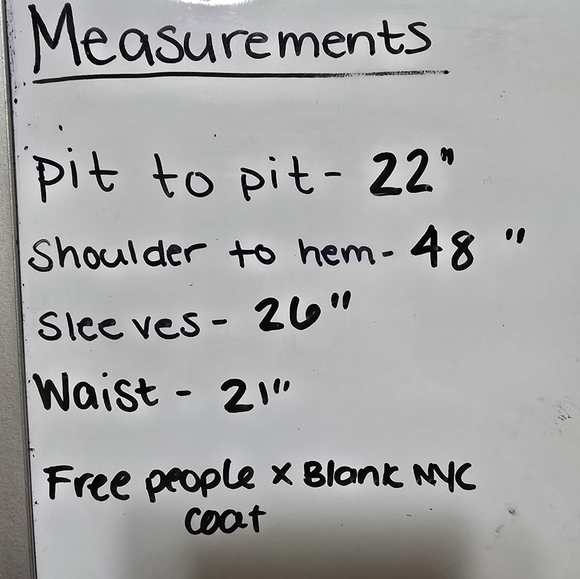 Measurements
pit to pit- 22"
Shoulder to hem- 48 "
Sleeves- 26"
Waist - 21"
Free people x Blank NYC
coat